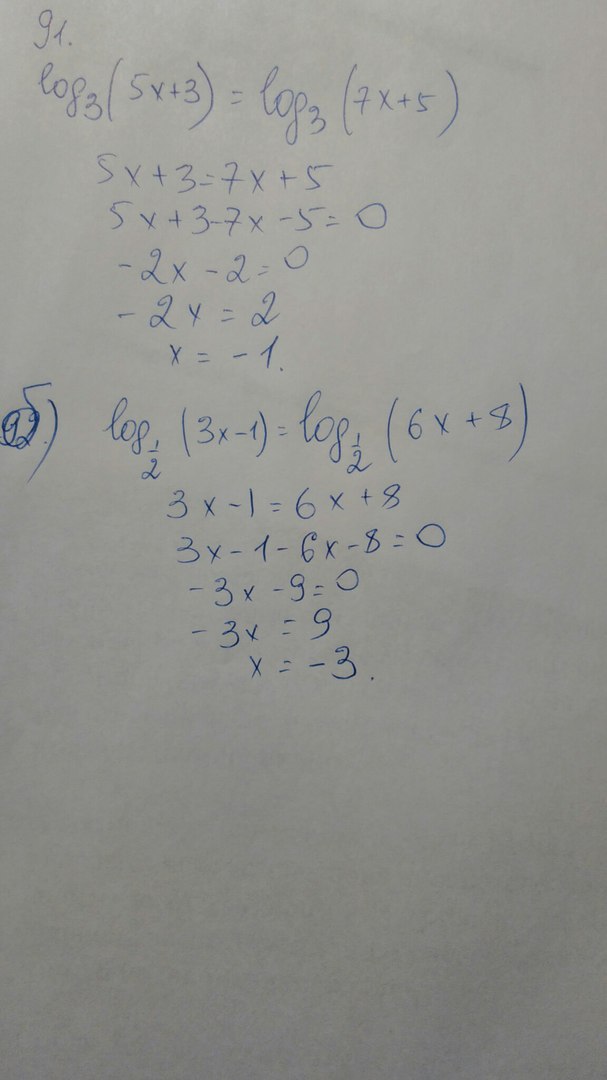 91.
log₃(5x+3) = log₃(7x+5)
5x+3=7x+5
5x+3-7x-5=0
-2x-2=0
-2x=2
x=-1.
б) log_{1/2}(3x-1)=log_{1/2}(6x+8)
3x-1=6x+8
3x-1-6x-8=0
-3x-9=0
-3x=9
x=-3.